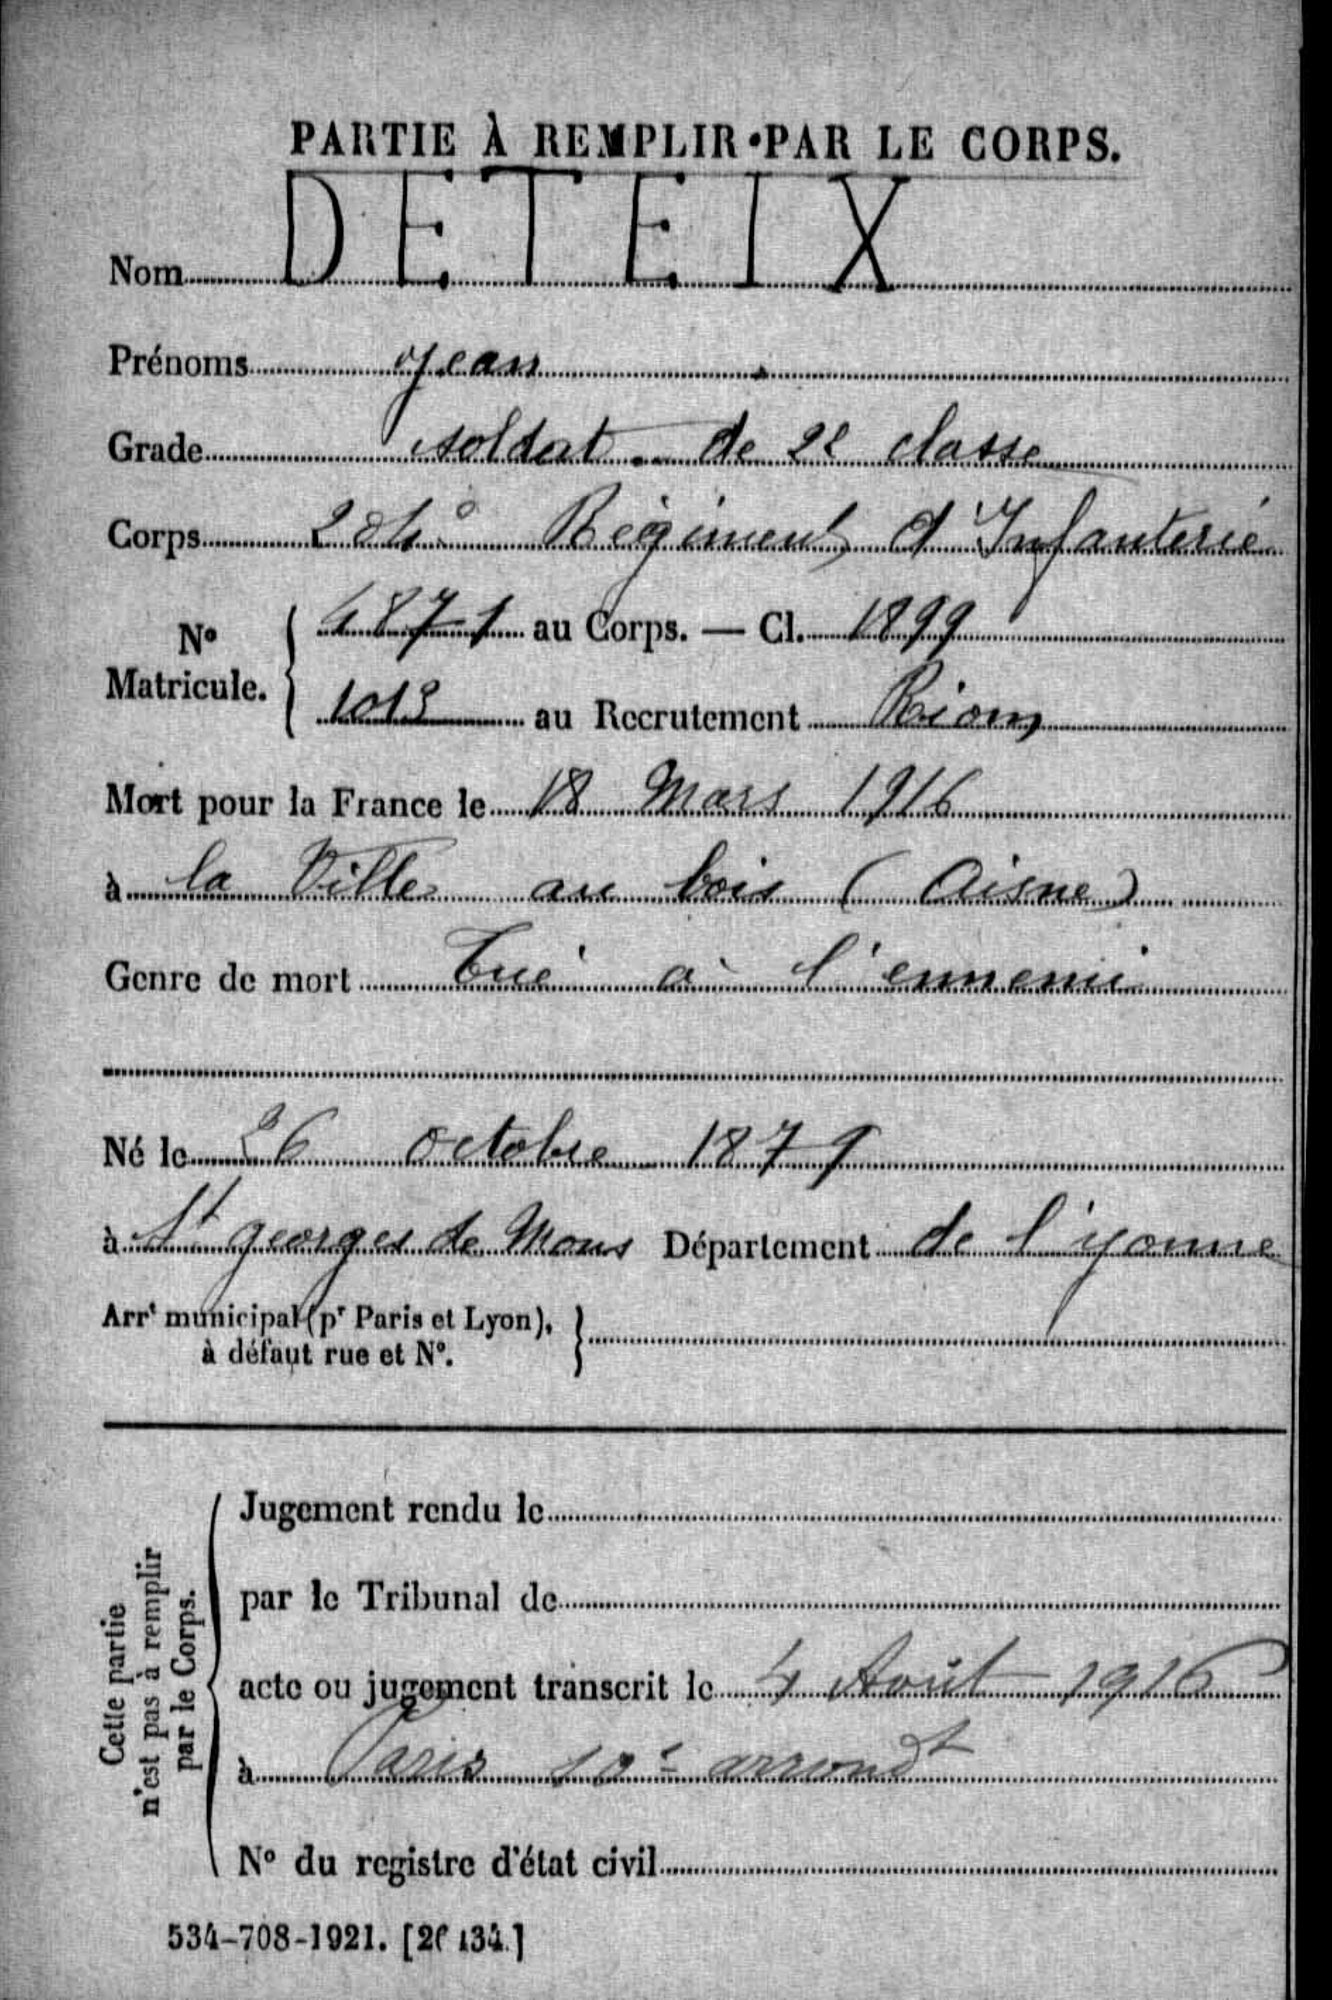 PARTIE À REMPLIR PAR LE CORPS.
Nom DETEIX
Prénoms Jean
Grade soldat de 2e classe
Corps 204e Régiment d'Infanterie
No Matricule. { 4871 au Corps. — Cl. 1899
1013 au Recrutement Riom
Mort pour la France le 18 Mars 1916
à la Ville au bois (Aisne)
Genre de mort Tué à l'ennemi
Né le 26 octobre 1879
à St georges de Mons Département de l'yonne
Arrt municipal (pr Paris et Lyon), à défaut rue et No. }
Cette partie n'est pas à remplir par le Corps. {
Jugement rendu le
par le Tribunal de
acte ou jugement transcrit le 4 Août 1916
à Paris 10e arrondt
No du registre d'état civil
534-708-1921. [26134.]